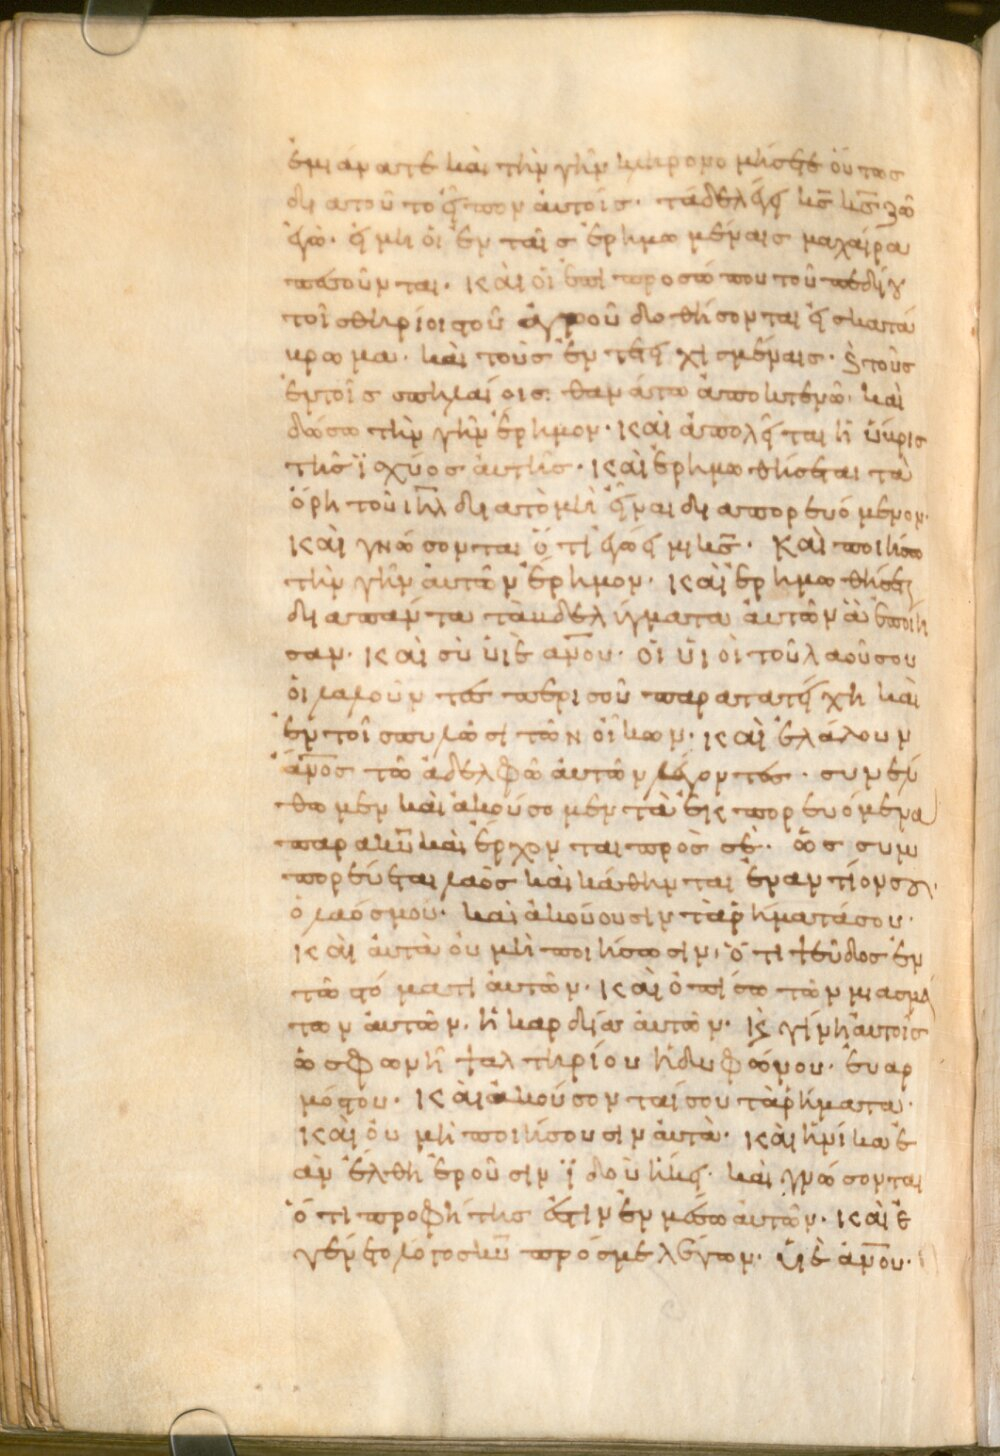 ἐμιάνατε καὶ τὴν γῆν κληρονομήσετε οὕτως
διατοῦτο εἶπον αὐτοῖς· τάδε λέγει κ̅ς̅ κ̅ς̅· ζῶ
ἐγώ· εἰ μὴ οἱ ἐν ταῖς ἐρημωμέναις μαχαίρα
πεσοῦνται· καὶ οἱ ἐπὶ προσώπου τοῦ πεδίου
τοῖς θηρίοις τοῦ ἀγροῦ δοθήσονται εἰς κατά
βρωμα· καὶ τοὺς ἐν τετειχισμέναις· καὶ τοὺς
ἐν τοῖς σπηλαίοις θανάτω ἀποκτενῶ· καὶ
δώσω τὴν γῆν ἔρημον· καὶ ἀπολεῖται ἡ ὕβρις
τῆς ἰσχύος αὐτῆς· καὶ ἐρημωθήσεται τὰ
ὄρη τοῦ ι̅η̅λ̅ διατὸ μὴ εἶναι διαπορευόμενον·
καὶ γνώσονται ὅτι ἐγώ εἰμι κ̅ς̅· Καὶ ποιήσω
τὴν γῆν αὐτῶν ἔρημον· καὶ ἐρημωθήσεται
διαπάντα τὰ βδελύγματα αὐτῶν ἃ ἐποίη
σαν· καὶ σὺ υἱὲ α̅ν̅ο̅υ̅· οἱ υἱοὶ τοῦ λαοῦ σου
οἱ λαλοῦντες περι σοῦ παρα τατείχη καὶ
ἐν τοῖς πυλῶσι τῶν οἴκων· καὶ ἐλάλουν
α̅ν̅ο̅ς̅ τῶ ἀδελφῶ αὐτῶν λέγοντες· συνέλ
θωμεν καὶ ἀκούσομεν τὰ ἐκπορευόμενα
παρα κ̅υ̅ καὶ ἔρχονται πρὸς σὲ· ὡς συμ
πορεύεται λαὸς καὶ κάθηνται ἐναντίον σου·
ὁ λαός μου· καὶ ἀκούουσιν τὰ ῥήματά σου·
καὶ αὐτὰ οὐ μὴ ποιήσωσιν· ὅτι ψεῦδος ἐν
τῶ στόματι αὐτῶν· καὶ ὀπίσω τῶν μιασμά
των αὐτῶν· ἡ καρδία αὐτῶν· καὶ γίνη αὐτοῖς
ὡς φωνὴ ψαλτηρίου ἡδυφώνου· εὐαρ
μόστου· καὶ ἀκούσονταί σου τὰ ῥήματα·
καὶ οὐ μὴ ποιήσουσιν αὐτὰ· καὶ ἡνίκα ἐ
ὰν ἔλθη ἐροῦσιν ἰδοὺ ἥκει· καὶ γνώσονται
ὅτι προφήτης ἐστὶν ἐν μέσω αὐτῶν· καὶ ἐ
γένετο λόγος κ̅υ̅ πρός με λέγων· υἱὲ α̅ν̅ο̅υ̅·